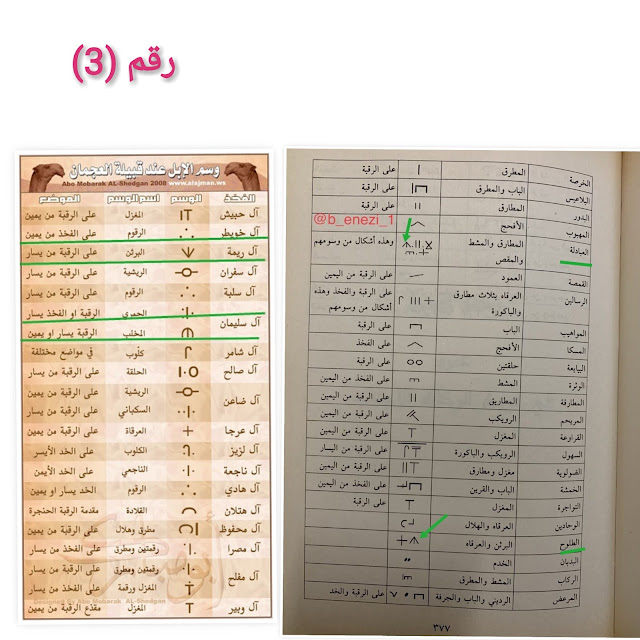 رقم (3)
الخرصة المطرق على الرقبة
البلاعيس الباب والمطرق على الرقبة
البدور المطارق على الرقبة
@b_enezi_1
المهيوب الأفحج
العبادلة المطارق والمشط والمقص وهذه أشكال من وسومهم
القمصة العمود على الرقبة من اليمين
الرسالين العرقاه بثلاث مطارق والباكورة على الرقبة والفخذ وهذه أشكال من وسومهم
المواهيب الباب على الرقبة
المسكا الأفحج على الفخذ
اليابعة حلقتين على الرقبة
الوثرة المشط على الفخذ من اليمين
المطارفة المطاريق على الرقبة من اليمين
المريحم الرويكب على الرقبة من اليمين
القراوعة المغزل على الرقبة من اليمين
السهول الرويكب والباكورة على الرقبة من اليسار
الضولوية مغزل ومطارق على الرقبة من اليمين
الخمشة الباب والقرين على الفخذ من اليمين
التواجرة المغزل على الرقبة
الوحادين العرقاه والهلال
الطلوح البرثن والعرقاه
البدنان الخدم
الركاب المشط والمطرق
المرعض الرديني والباب والجرفة على الرقبة والخد
٣٧٧
وسم الإبل عند قبيلة العجمان
Abo Mobarak AL-Shedgan 2008 www.alajman.ws
الفخذ الوسم اسم الوسم الموضع
آل حبيش المغزل على الرقبة من يمين
آل خويطر الرقوم على الفخذ من يمين
آل ريمة البرثن على الرقبة من يسار
آل سفران الريشية على الرقبة من يسار
آل سلبة الرقوم على الرقبة من يسار
آل سليمان الحمري الرقبة او الفخذ يسار
المخلب الرقبة يسار او يمين
آل شامر كلوب في مواضع مختلفة
آل صالح الحلقة على الرقبة من يسار
آل ضاعن الريشية على الرقبة من يمين
السكباني على الرقبة من يسار
آل عرجا العرقاة على الرقبة من يمين
آل لزيز الكلوب على الخد الأيسر
آل ناجعة الناجعي على الخد الأيمن
آل هادي الرقوم الخد يسار او يمين
آل هتلان القلادة مقدمة الرقبة الحنجرة
آل محفوظ مطرق وهلال على الرقبة من يمين
آل مصرا رقمتين ومطرق على الفخذ من يسار
آل مفلح رقمتين ومطرق على الرقبة من يسار
المغزل ورقمة على الرقبة من يسار
آل وبير المغزل مقدّع الرقبة من يمين
Designed By Abo Mobarak AL-Shedgan